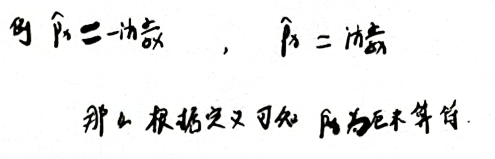 则 p̂ₓ = -iħ ∂/∂x , p̂ₓ = iħ ∂/∂x
那么根据定义可知 p̂ₓ为厄米算符.